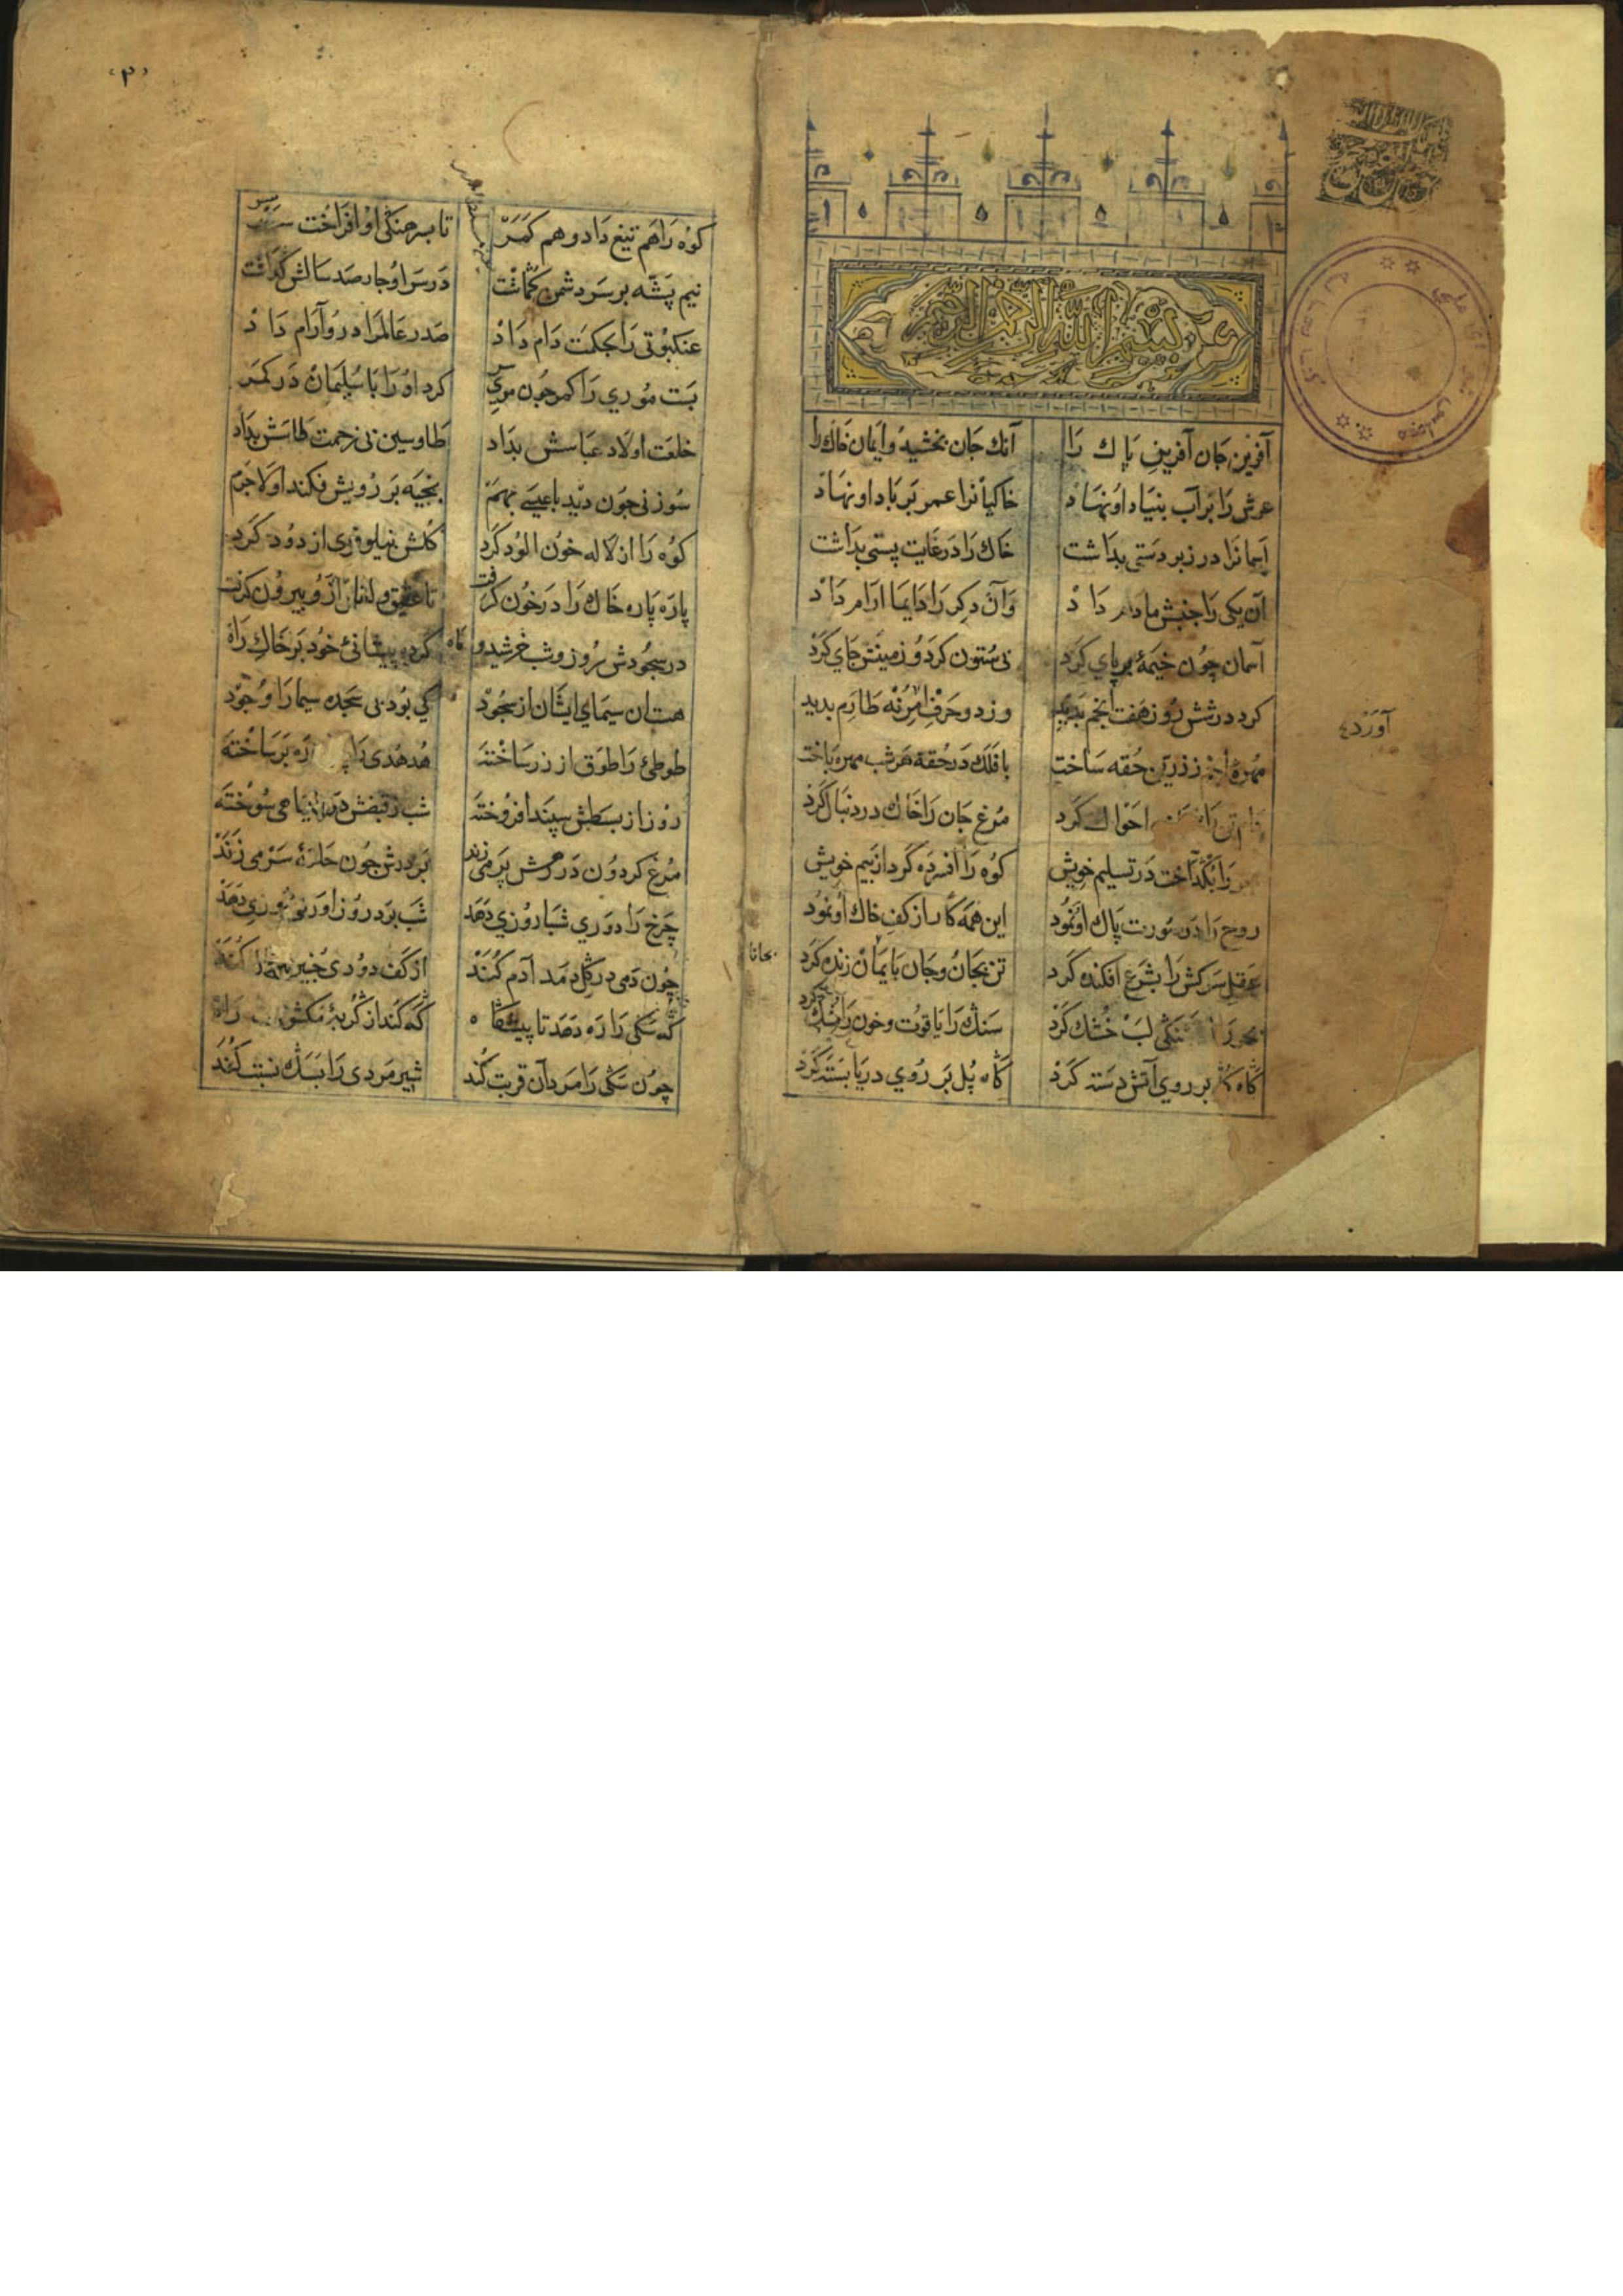 بسم الله الرحمن الرحيم
آفرين جان آفرين پاك را آنك جان بخشيد وايمان خاك را
عرش را بر آب بنياد او نهاد خاكيانرا عمر بر باد او نهاد
آسمانرا در زبر دستی بداشت خاك را در غايت پستی بداشت
آن يكی را جنبش مادام داد وآن دكر را دايما ارام داد
آسمان چون خيمهٔ بر پاي كرد بی ستون كرد و زمينش جاي كرد
كرد در شش روز هفت انجم بديد وز دو حرف امر نه طارم بديد
مهرهٔ انجم ز زرين حقه ساخت با فلك در حقه هر شب مهره باخت
دام تن را احوال كرد مرغ جان را خاك در دنبال كرد
را بكداخت در تسليم خويش كوه را افسرده كرد از بيم خويش
روح را در صورت پاك او نمود اين همه كار از كف خاك او نمود
عقل سركش را بشرع افكنده كرد تن بجان وجان بايمان زنده كرد
بحر را لب خشك كرد سنك را ياقوت وخون را مشك كرد
گاه گل بر روي آتش دسته كرد گاه پل بر روي دريا بسته كرد
بجانا
آورد
۳
كوه را هم تيغ داد و هم كمر تا بسرهنگی او افراخت سر
نيم پشه بر سر دشمن گماشت در سر او چار صد سالش گذاشت
عنكبوتی را بحكمت دام داد صدر عالم را درو آرام داد
بست موري را كمر چون موي سر كرد او را با سليمان در كمر
خلعت اولاد عباسش بداد طاوسين بی زحمت طاسش بداد
سوزنی چون ديد با عيسی بهم بخيه بر رويش فكند او لاجرم
كوه را از لاله خون الود كرد گلش نيلوفری از دود كرد
پاره پاره خاك را در خون كرفت تا عقيق و لعل ازو بيرون كرفت
در سجودش روز وشب خرشيد و ماه كرده پيشانئ خود بر خاك راه
هست ان سيماي ايشان از سجود كي بود بی سجده سيما را وجود
طوطئ را طوق از زر ساخته هدهدی را ره بر ساخته
روز از بسطش سپند افروخته شب ز قبضش در سياهی سوخته
مرغ كردون در رهش پر می زند بر درش چون حلقهٔ سر می زند
چرخ را دوري شباروزي دهد شب برد روز اورد روزي دهد
چون دمی در گل دمد آدم كند از كف و دودی همه عالم كند
گه سگی را ره دهد تا پيشگاه گه كند از گربهٔ مكشوف راه
چون سگی را مرد آن قربت كند شير مردی را بسك نسبت كند